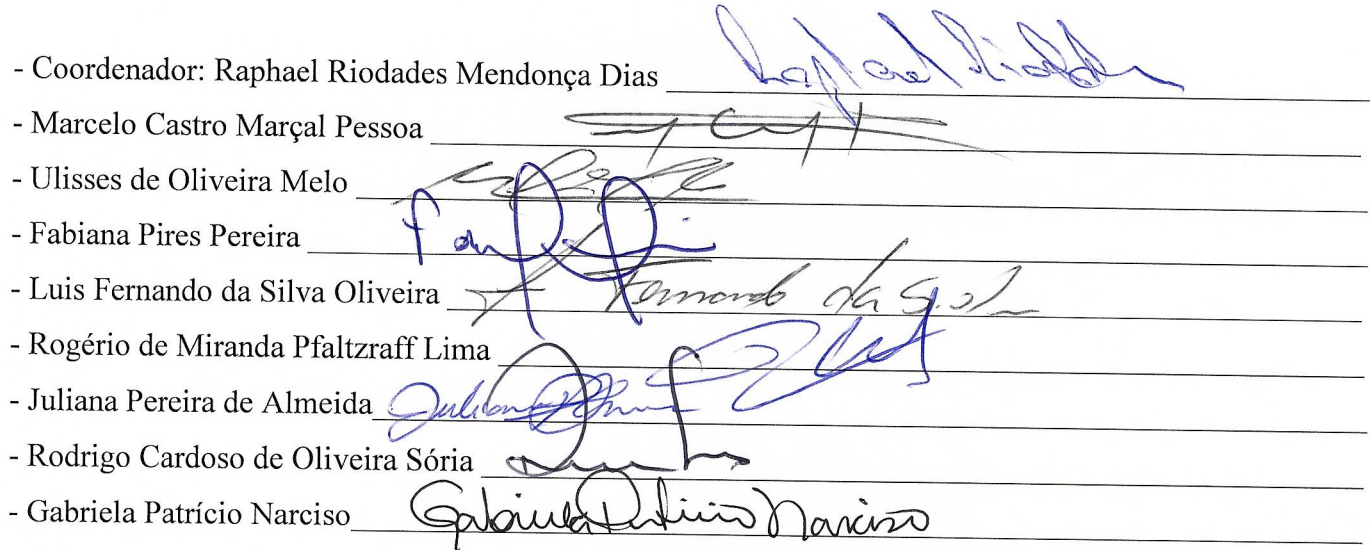 - Coordenador: Raphael Riodades Mendonça Dias Raphael Riodades
- Marcelo Castro Marçal Pessoa
- Ulisses de Oliveira Melo
- Fabiana Pires Pereira
- Luis Fernando da Silva Oliveira Fernando da Silva
- Rogério de Miranda Pfaltzraff Lima
- Juliana Pereira de Almeida Juliana
- Rodrigo Cardoso de Oliveira Sória
- Gabriela Patrício Narciso Gabriela Patrício Narciso